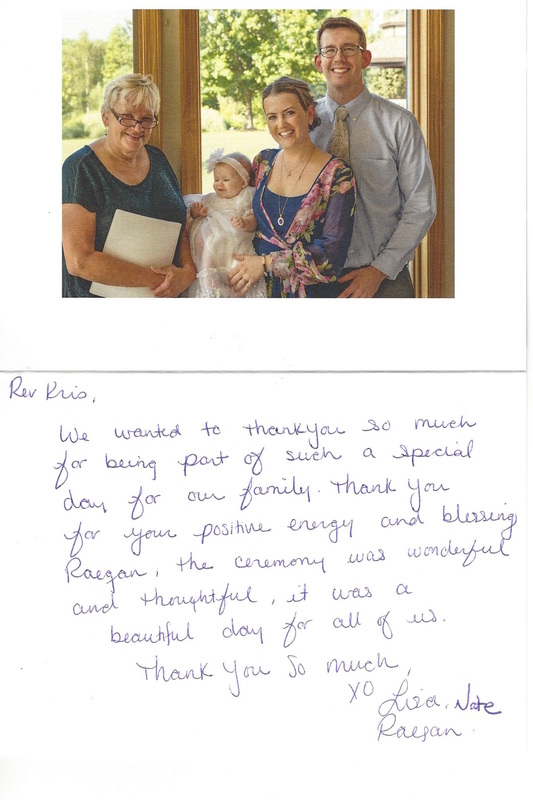 Rev Kris,
We wanted to thankyou so much
for being part of such a special
day for our family. Thank You
for your positive energy and blessing
Raegan, the ceremony was wonderful
and thoughtful, it was a
beautiful day for all of us.
Thank You So much,
XO Liza, Nate
Raegan